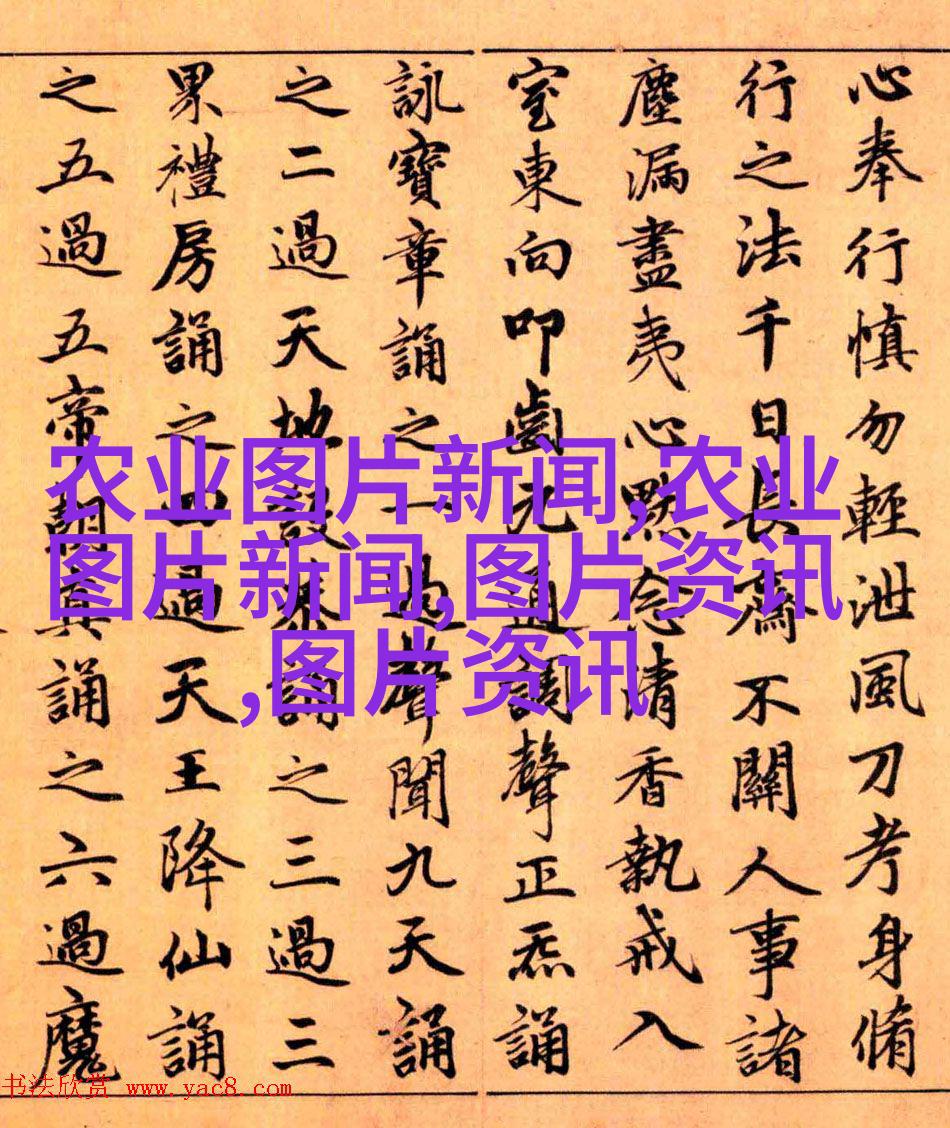 心奉行慎勿輕泄風刀考身脩
行之法千日長齋不關人事諸
塵漏盡夷心默念清香執戒入
室東向叩齒通調聲正炁誦
詠寶章誦之一過聲聞九天誦
之二過天地設恭誦之三過三
累禮房誦之四過天王降仙誦
之五過五帝朝真誦之六過魔
农业图片新闻,农业
图片新闻,图片资讯
,图片资讯
书法欣赏 www.yac8.com